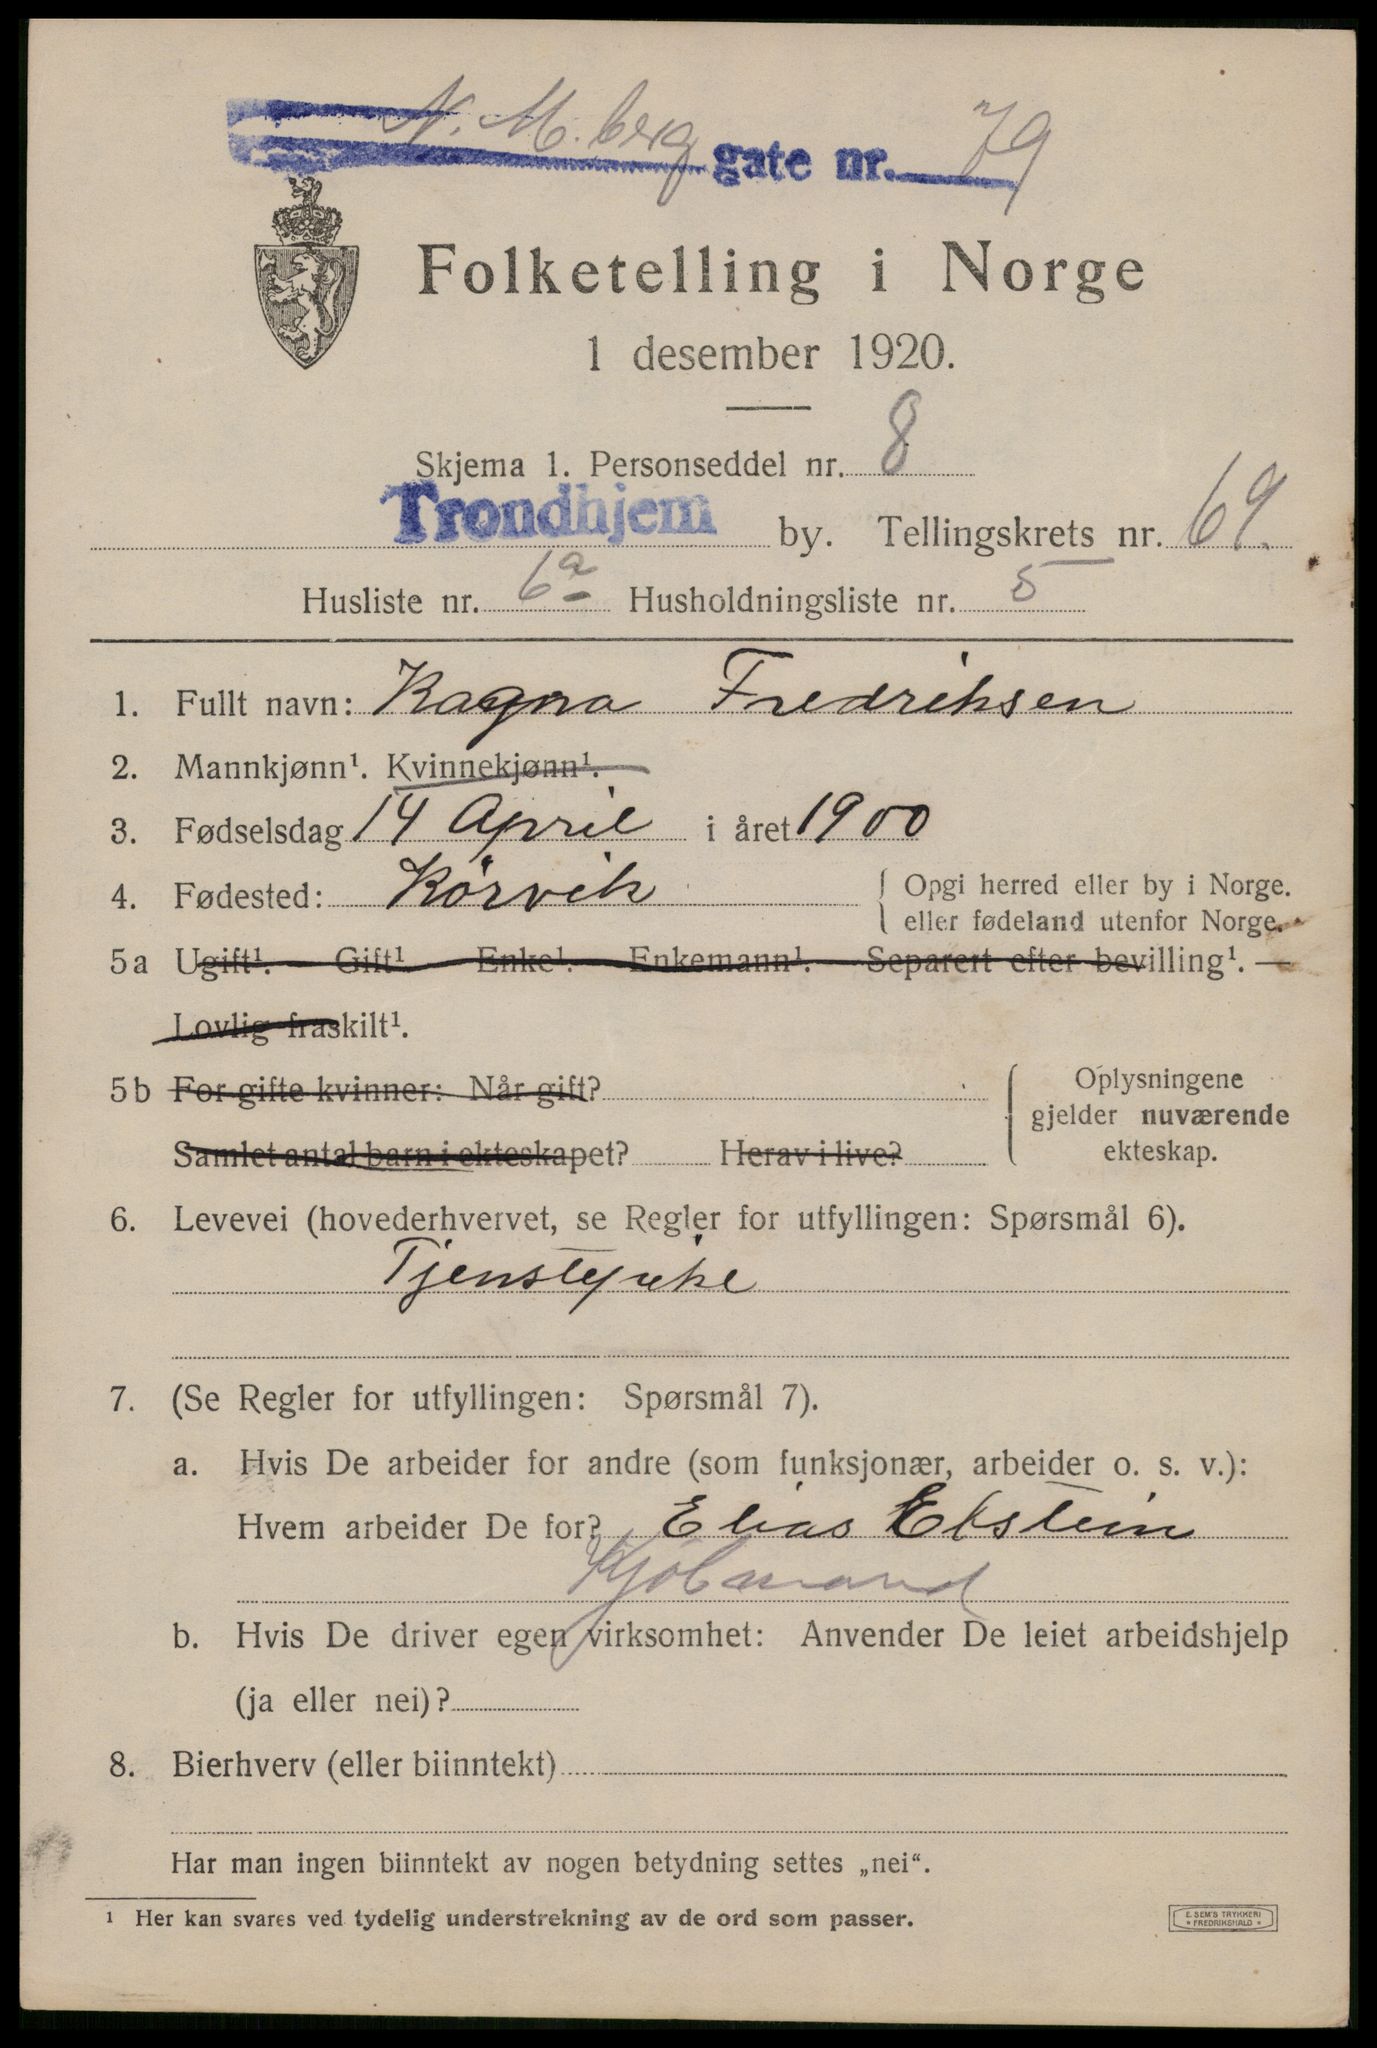 N. M. berg gate nr. 79
Folketelling i Norge
1 desember 1920.
Skjema 1. Personseddel nr. 8
Trondhjem by. Tellingskrets nr. 69.
Husliste nr. 6a Husholdningsliste nr. 5
1. Fullt navn: Ragna Fredriksen
2. Mannkjønn¹. Kvinnekjønn¹.
3. Fødselsdag 14 April i året 1900
4. Fødested: Rörvik { Opgi herred eller by i Norge.
eller fødeland utenfor Norge.
5a Ugift¹. — Gift¹. — Enke¹. — Enkemann¹. — Separert efter bevilling¹. —
Lovlig fraskilt¹.
5b For gifte kvinner: Når gift?
Samlet antal barn i ekteskapet? Herav i live?
Oplysningene
gjelder nuværende
ekteskap.
6. Levevei (hovederhvervet, se Regler for utfyllingen: Spørsmål 6).
Tjenstepike
7. (Se Regler for utfyllingen: Spørsmål 7).
a. Hvis De arbeider for andre (som funksjonær, arbeider o. s. v.):
Hvem arbeider De for? Elias Ekstein
Kjöbmand
b. Hvis De driver egen virksomhet: Anvender De leiet arbeidshjelp
(ja eller nei)?
8. Bierhverv (eller biinntekt)
Har man ingen biinntekt av nogen betydning settes „nei“.
¹ Her kan svares ved tydelig understrekning av de ord som passer.
E. SEM'S TRYKKERI
* FREDRIKSHALD *